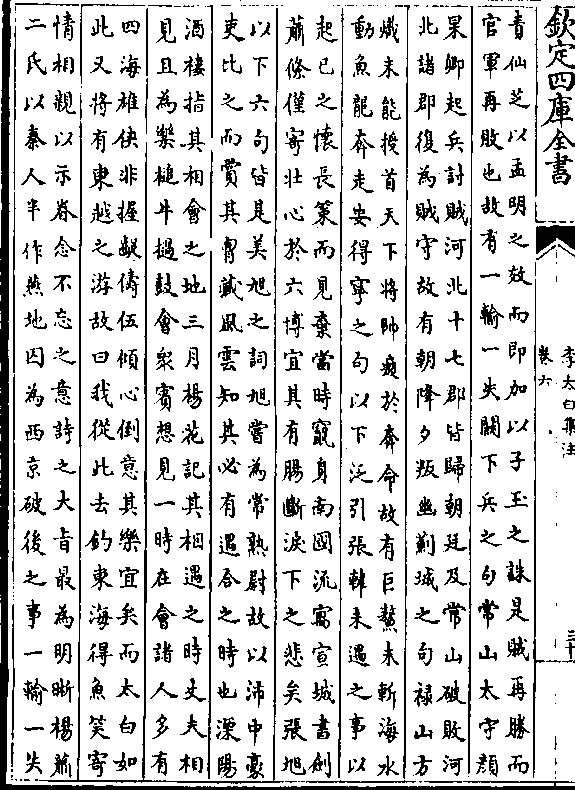 欽定四庫全書
李太白集注
卷六
三十
責仙芝以孟明之效而即加以子玉之誅是賊再勝而
官軍再敗也故有一輸一失關下兵之句常山太守顔
杲卿起兵討賊河北十七郡皆歸朝廷及常山破敗河
北諸郡復為賊守故有朝降夕叛幽薊城之句祿山方
熾未能授首天下將帥疲於奔命故有巨鰲未斬海水
動魚龍奔走安得寧之句以下泛引張韓未遇之事以
起已之懷長策而見棄當時竄身南國流寓宣城書劍
蕭條僅寄壯心於六博宜其有腸斷淚下之悲矣張旭
以下六句皆是美旭之詞旭嘗為常熟尉故以沛中豪
吏比之而賞其胷藏風雲知其必有遇合之時也溧陽
酒樓指其相會之地三月楊花記其相遇之時丈夫相
見且為樂槌牛撾鼓會衆賓想見一時在會諸人多有
四海雄俠非握齪儔伍傾心倒意其樂宜矣而太白如
此又將有東越之游故曰我從此去釣東海得魚笑寄
情相親以示眷念不忘之意詩之大旨最為明晰楊蕭
二氏以秦人半作燕地囚為西京破後之事一輸一失